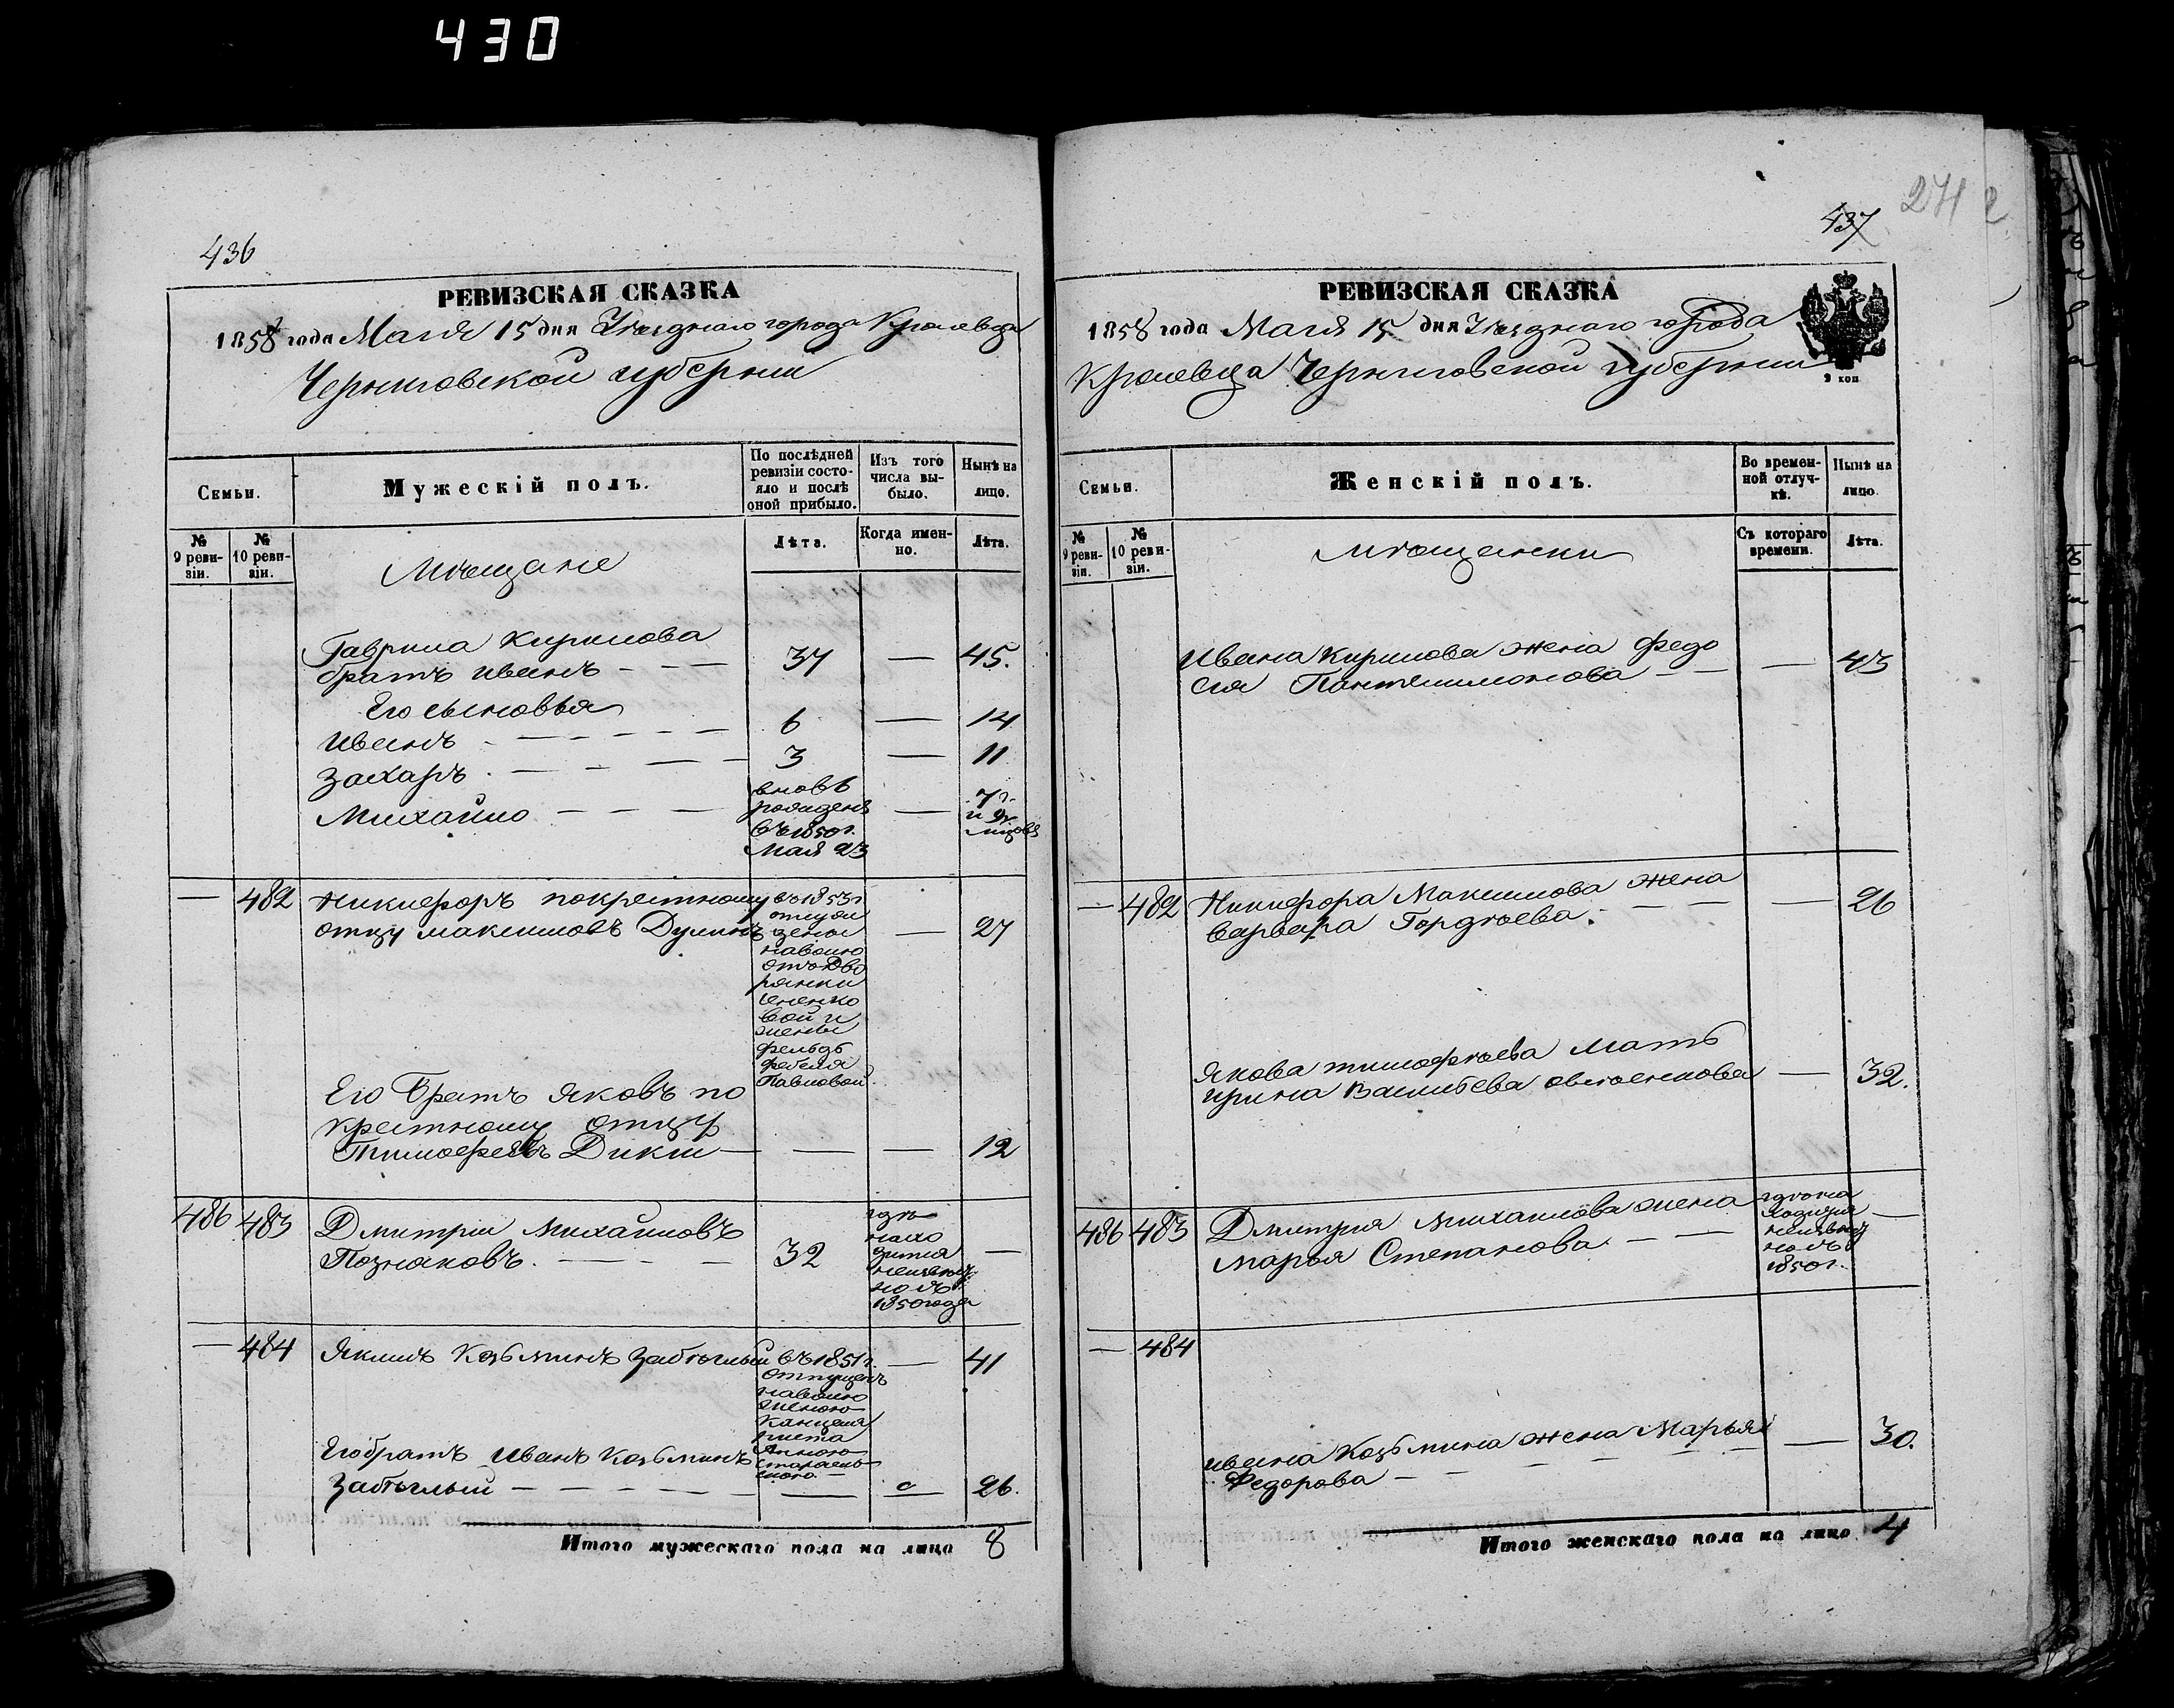 430
436
РЕВИЗСКАЯ СКАЗКА
1858 года Маия 15 дня Уѣзднаго города Кролевца
Черниговской губерніи
Семьи.
Мужескій полъ.
По послѣдней
ревизіи состо-
яло и послѣ
оной прибыло.
Изъ того
числа вы-
было.
Нынѣ на
лицо.
№
9 реви-
зіи.
№
10 реви-
зіи.
Мѣщане
Лѣта.
Когда имен-
но.
Лѣта.
Гаврила Кирилова
братъ Иванъ - - - 37 — 45.
Его сыновья
Иванъ - - - - - 6 — 14
Захаръ - - - - - 3 — 11
Михайло - - -
вновь
рожденъ
въ 1850 г.
Мая 23
—
7 г.
и
мцовъ
— 482 Никифоръ покрестному
отцу Максимовъ
въ 1853 г
отпущен
навѣлю
отъ Дво
рянки
вой и
жены
фельдъ
фебеля
Павловой
— 27
Его Братъ Яковъ по
крестному отцу
Тимофеевъ Дикій — — — 12
486 483 Дмитрій Михайловъ
Позняковъ - - - 32
гдѣ
нахо
дится
неизвѣст
но съ
1850 года
—
— 484 Якимъ Козьминъ Забѣглый
въ 1851 г.
отпущенъ
на волю
женою
Канцеля
риста
Анною
— 41
Его братъ Иванъ Козьминъ
Забѣглый - - - - - — — 26.
Итого мужескаго пола на лицо 8
437
274
2
РЕВИЗСКАЯ СКАЗКА
1858 года Маия 15 дня Уѣзднаго города
Кролевца Черниговской губерніи
2 коп
Семьи.
Женскій полъ.
Во времен-
ной отлуч-
кѣ.
Нынѣ на
лицо.
№
9 реви-
зіи.
№
10 реви-
зіи.
Мѣщанки
Съ котораго
времени.
Лѣта.
Ивана Кирилова жена Федо
сия Пантелимонова - - — 43
— 482 Никифора Максимова жена
Варвара Гордѣева - - - — 26
Якова Тимофѣева Мать
Ирина Васильева Овсѣенкова — 32.
486 483 Дмитрия Михаилова жена
Марья Степанова - - -
гдѣ на
ходится
неизвѣст
но съ
1850 г.
—
— 484
Ивана Козьмина жена Марья
Федорова - - - - - — 30.
Итого женскаго пола на лицо 4